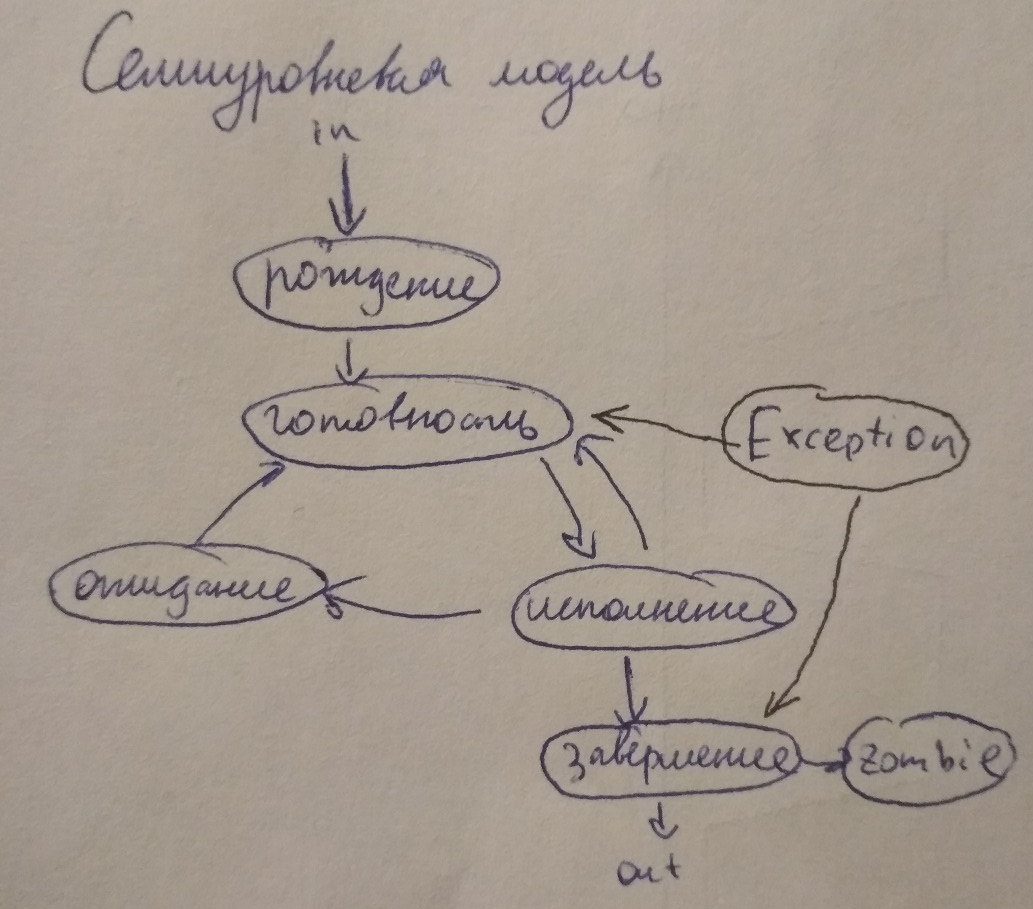 Семиуровневая модель
in
рождение
готовность
Exception
ожидание
исполнение
завершение
zombie
out